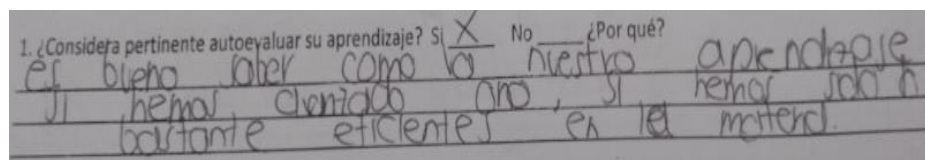 1. ¿Considera pertinente autoevaluar su aprendizaje? Si X No ____ ¿Por qué?
es bueno saber como va nuestro aprendizaje
si hemos avanzado o no, si hemos sido
bastante eficientes en la materia.